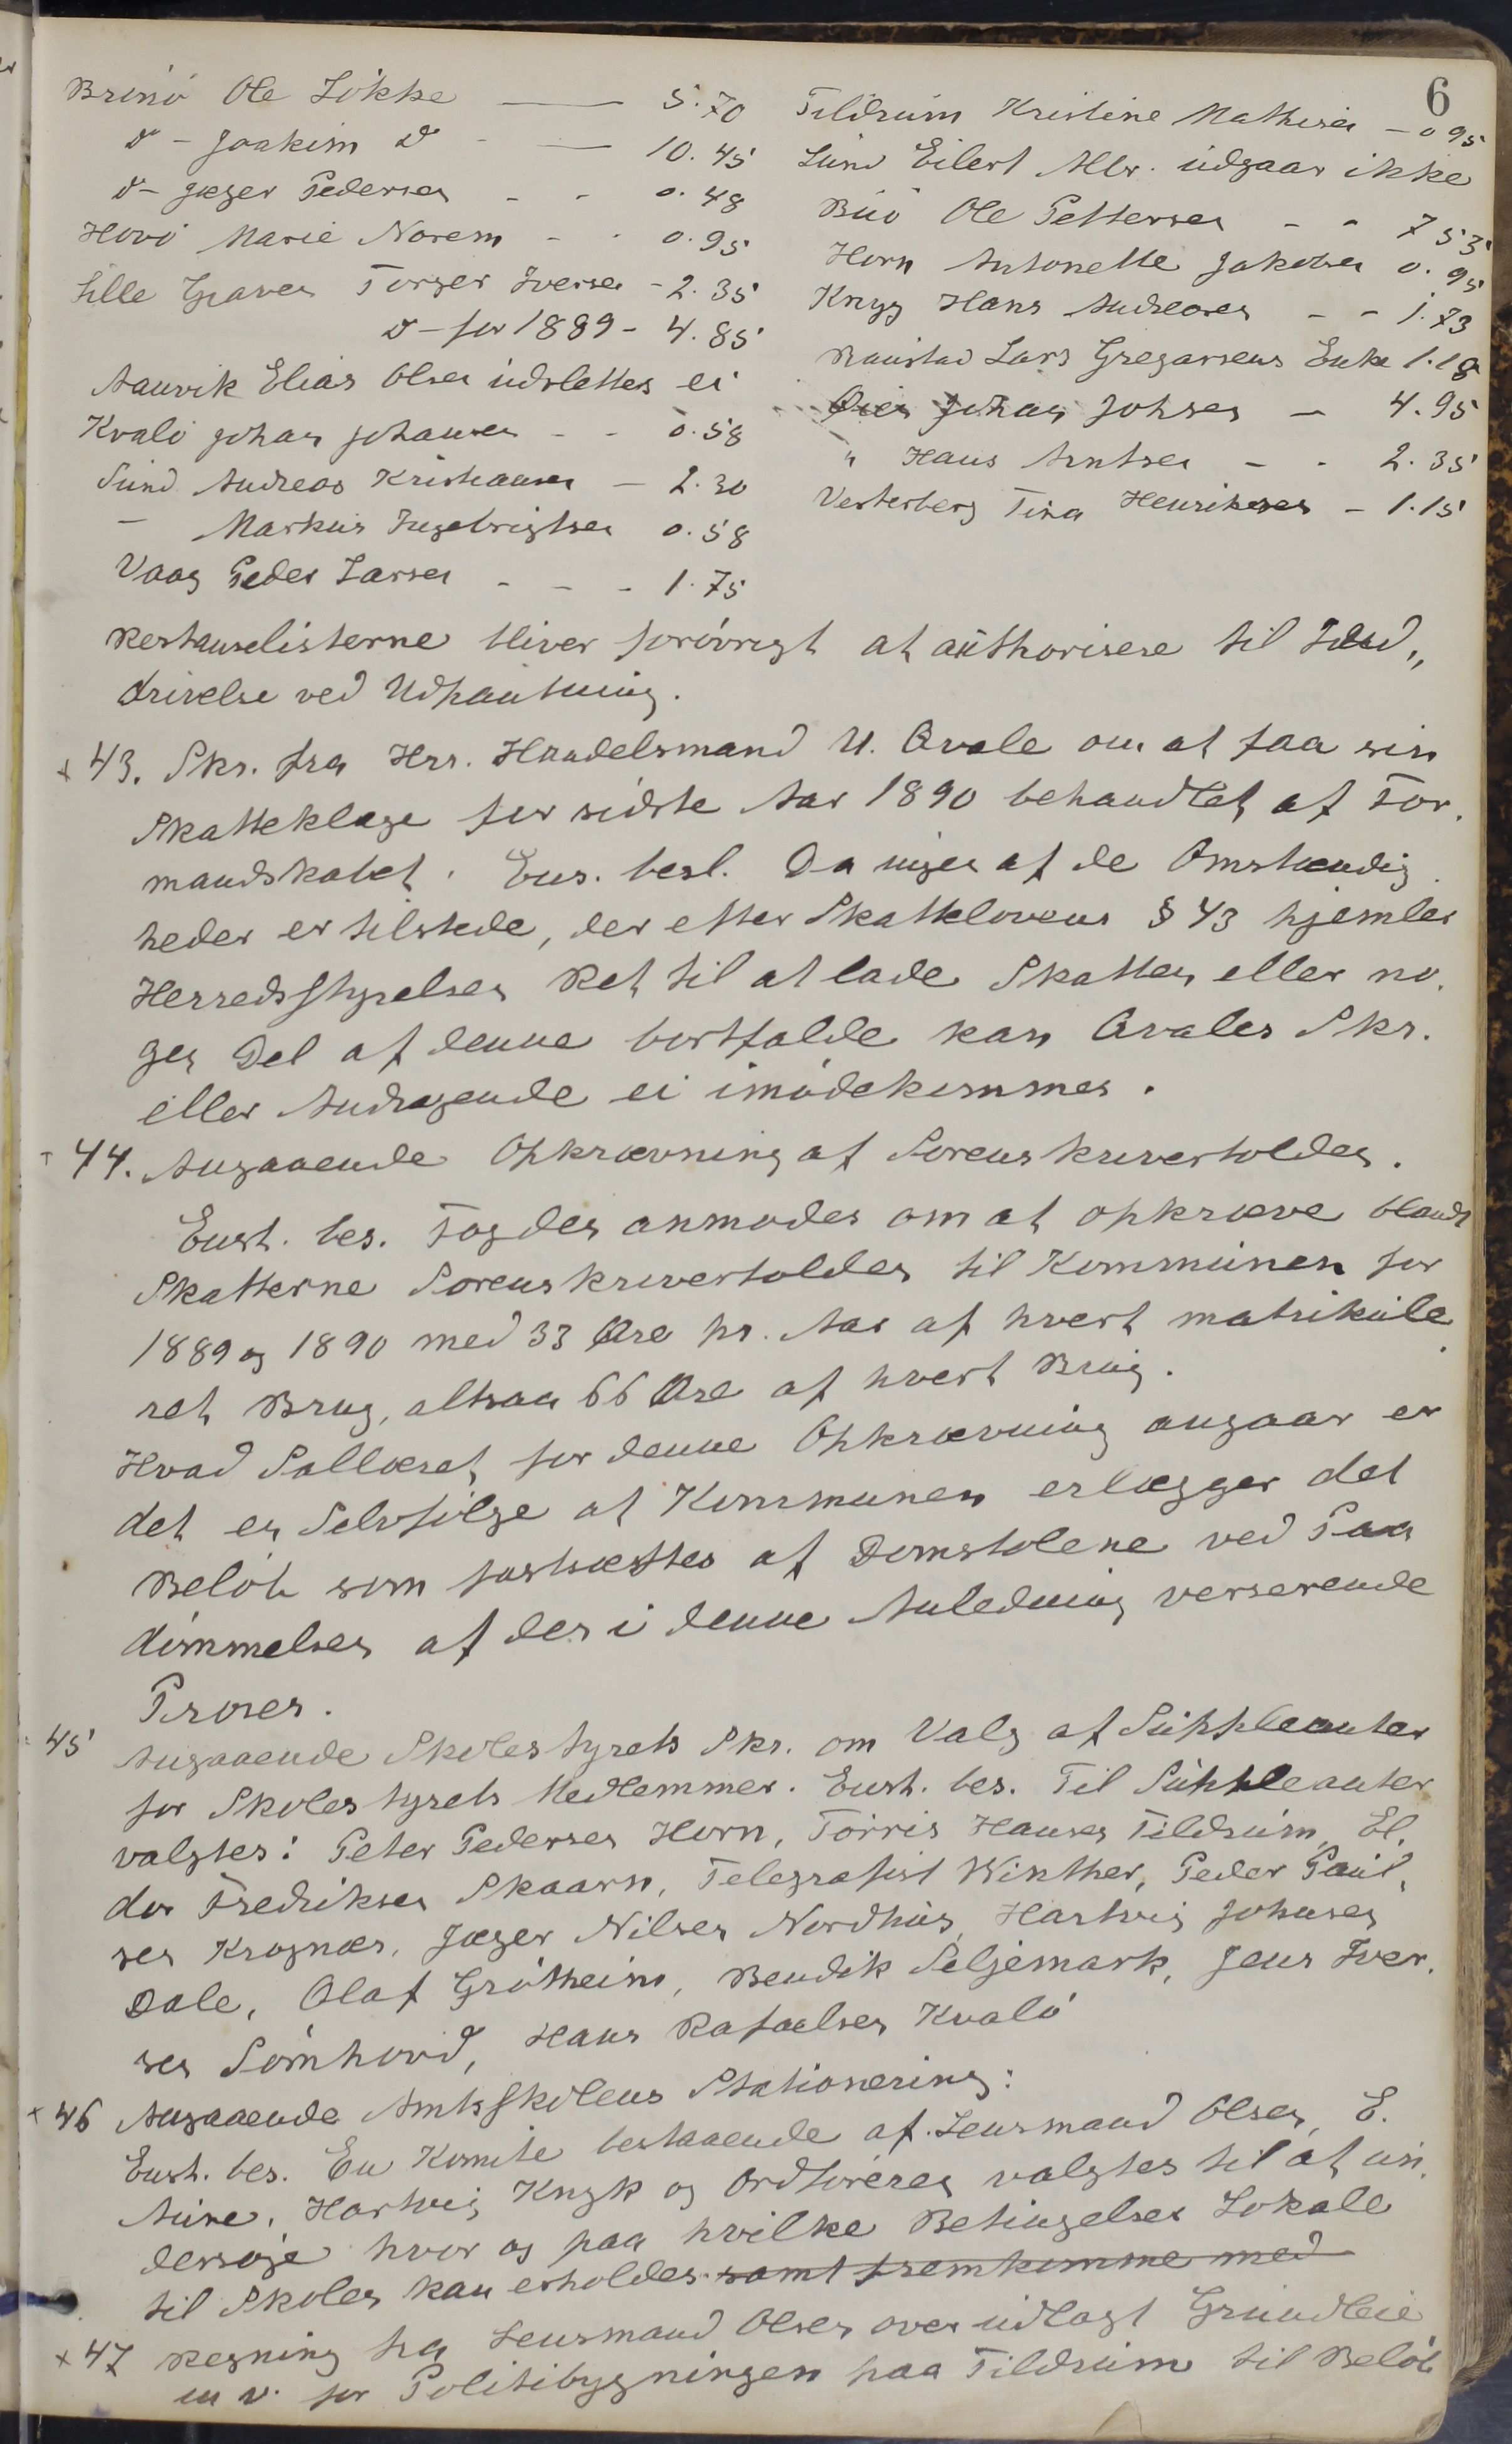 6
Brønø Ole Løkke — 5.70
d - Joakim d - — 10.45
d - Jæger Pedersen - - 0.48
Hovø Marie Norem - - 0.95
Lille Graven Torger Iversen - 2.35
d - for 1889 - 4.85
Aanvik Elias Olsen udslettes ei
Kvalø Johan Johansen - - 0.58
Sund Andreas Kristiansen - 2.30
- Markus Ingebrigtsen 0.58
Vaag Peder Larsen - - - 1.75
Tildrum Kristine Mathisen - 0 95
Lund Eilert Albr. udgaar ikke
Buø Ole Pettersen - - 7 53
Horn Antonette Jakobsen 0.95
Kryg Hans Andreasen - - 1.73
Raustad Lars Gregersens Enke 1.18
Øien Johan Johnsen - 4.95
" Hans Arntsen - - 2.35
Vesterberg Tina Henriksen - 1.15
Restanselisterne bliver forøvrigt at authorisere til Ind„
drivelse ved Udpantning.
x 43. Skr. fra Hrr. Handelsmand U. Qvale om at faa sin
Skatteklage for sidste Aar 1890 behandlet af For,
mandskabet. Ens. besl. Da ingen af de Omstændig,
heder er tilstede, der efter Skattelovens § 43 hjemler
Herredsstyrelsen Ret til at lade Skatten eller no,
gen Del af denne bortfalde kan Qvales Skr.
eller Andragende ei imødekommes.
+ 44. Angaaende Opkrævning af Sorenskrivertolden.
Enst. bes. Fogden anmodes om at opkræve blandt
Skatterne Sorenskrivertolden til Kommunen for
1889 og 1890 med 33 Øre pr. Aar af hvert matrikule,
ret Brug, altsaa 66 Øre af hvert Brug.
Hvad Sallæret for denne Opkrævning angaar er
det en Selvfølge at Kommunen erlægger det
Beløb som fastsættes af Domstolene ved Paa
dømmelsen af den i denne Anledning verserende
Proses.
45 Angaaende Skolestyrets Skr. om Valg af Suppleanter
for Skolestyrets Medlemmer. Enst. bes. Til Suppleanter
valgtes: Peter Pedersen Horn, Torris Hansen Tildrum, El,
dor Fredriksen Skaarn, Telegrafist Winther, Peder Paul,
sen Krognæs, Jæger Nilsen Nordhus, Hartvig Johnsen
Dale, Olaf Grøtheim, Bendik Seljemark, Jens Iver,
sen Sømhovd, Hans Rafaelsen Kvalø
x 46 Angaaende Amtsskolens Stationering:
Enst. bes. En Komite bestaaende af Lensmand Olsen, E.
Aune, Hartvig Knyk og Ordføreren valgtes til at un,
dersøge hvor og paa hvilke Betingelser Lokale
til Skolen kan erholdes samt fremkomme med
x 47 Regning fra Lensmand Olsen over udlagt Grundleie
m v. for Politibygningen paa Tildrum til Beløb